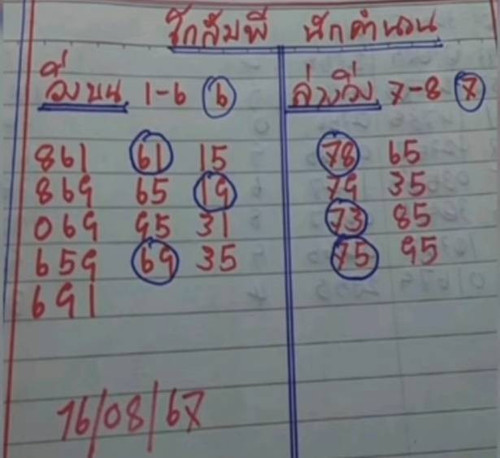 รักสัมพี นักคำนวน
วิ่งบน 1-6 6
861 61 15
869 65 19
069 95 31
659 69 35
691
ล่างวิ่ง 7-8 7
78 65
79 35
73 85
75 95
16/08/67